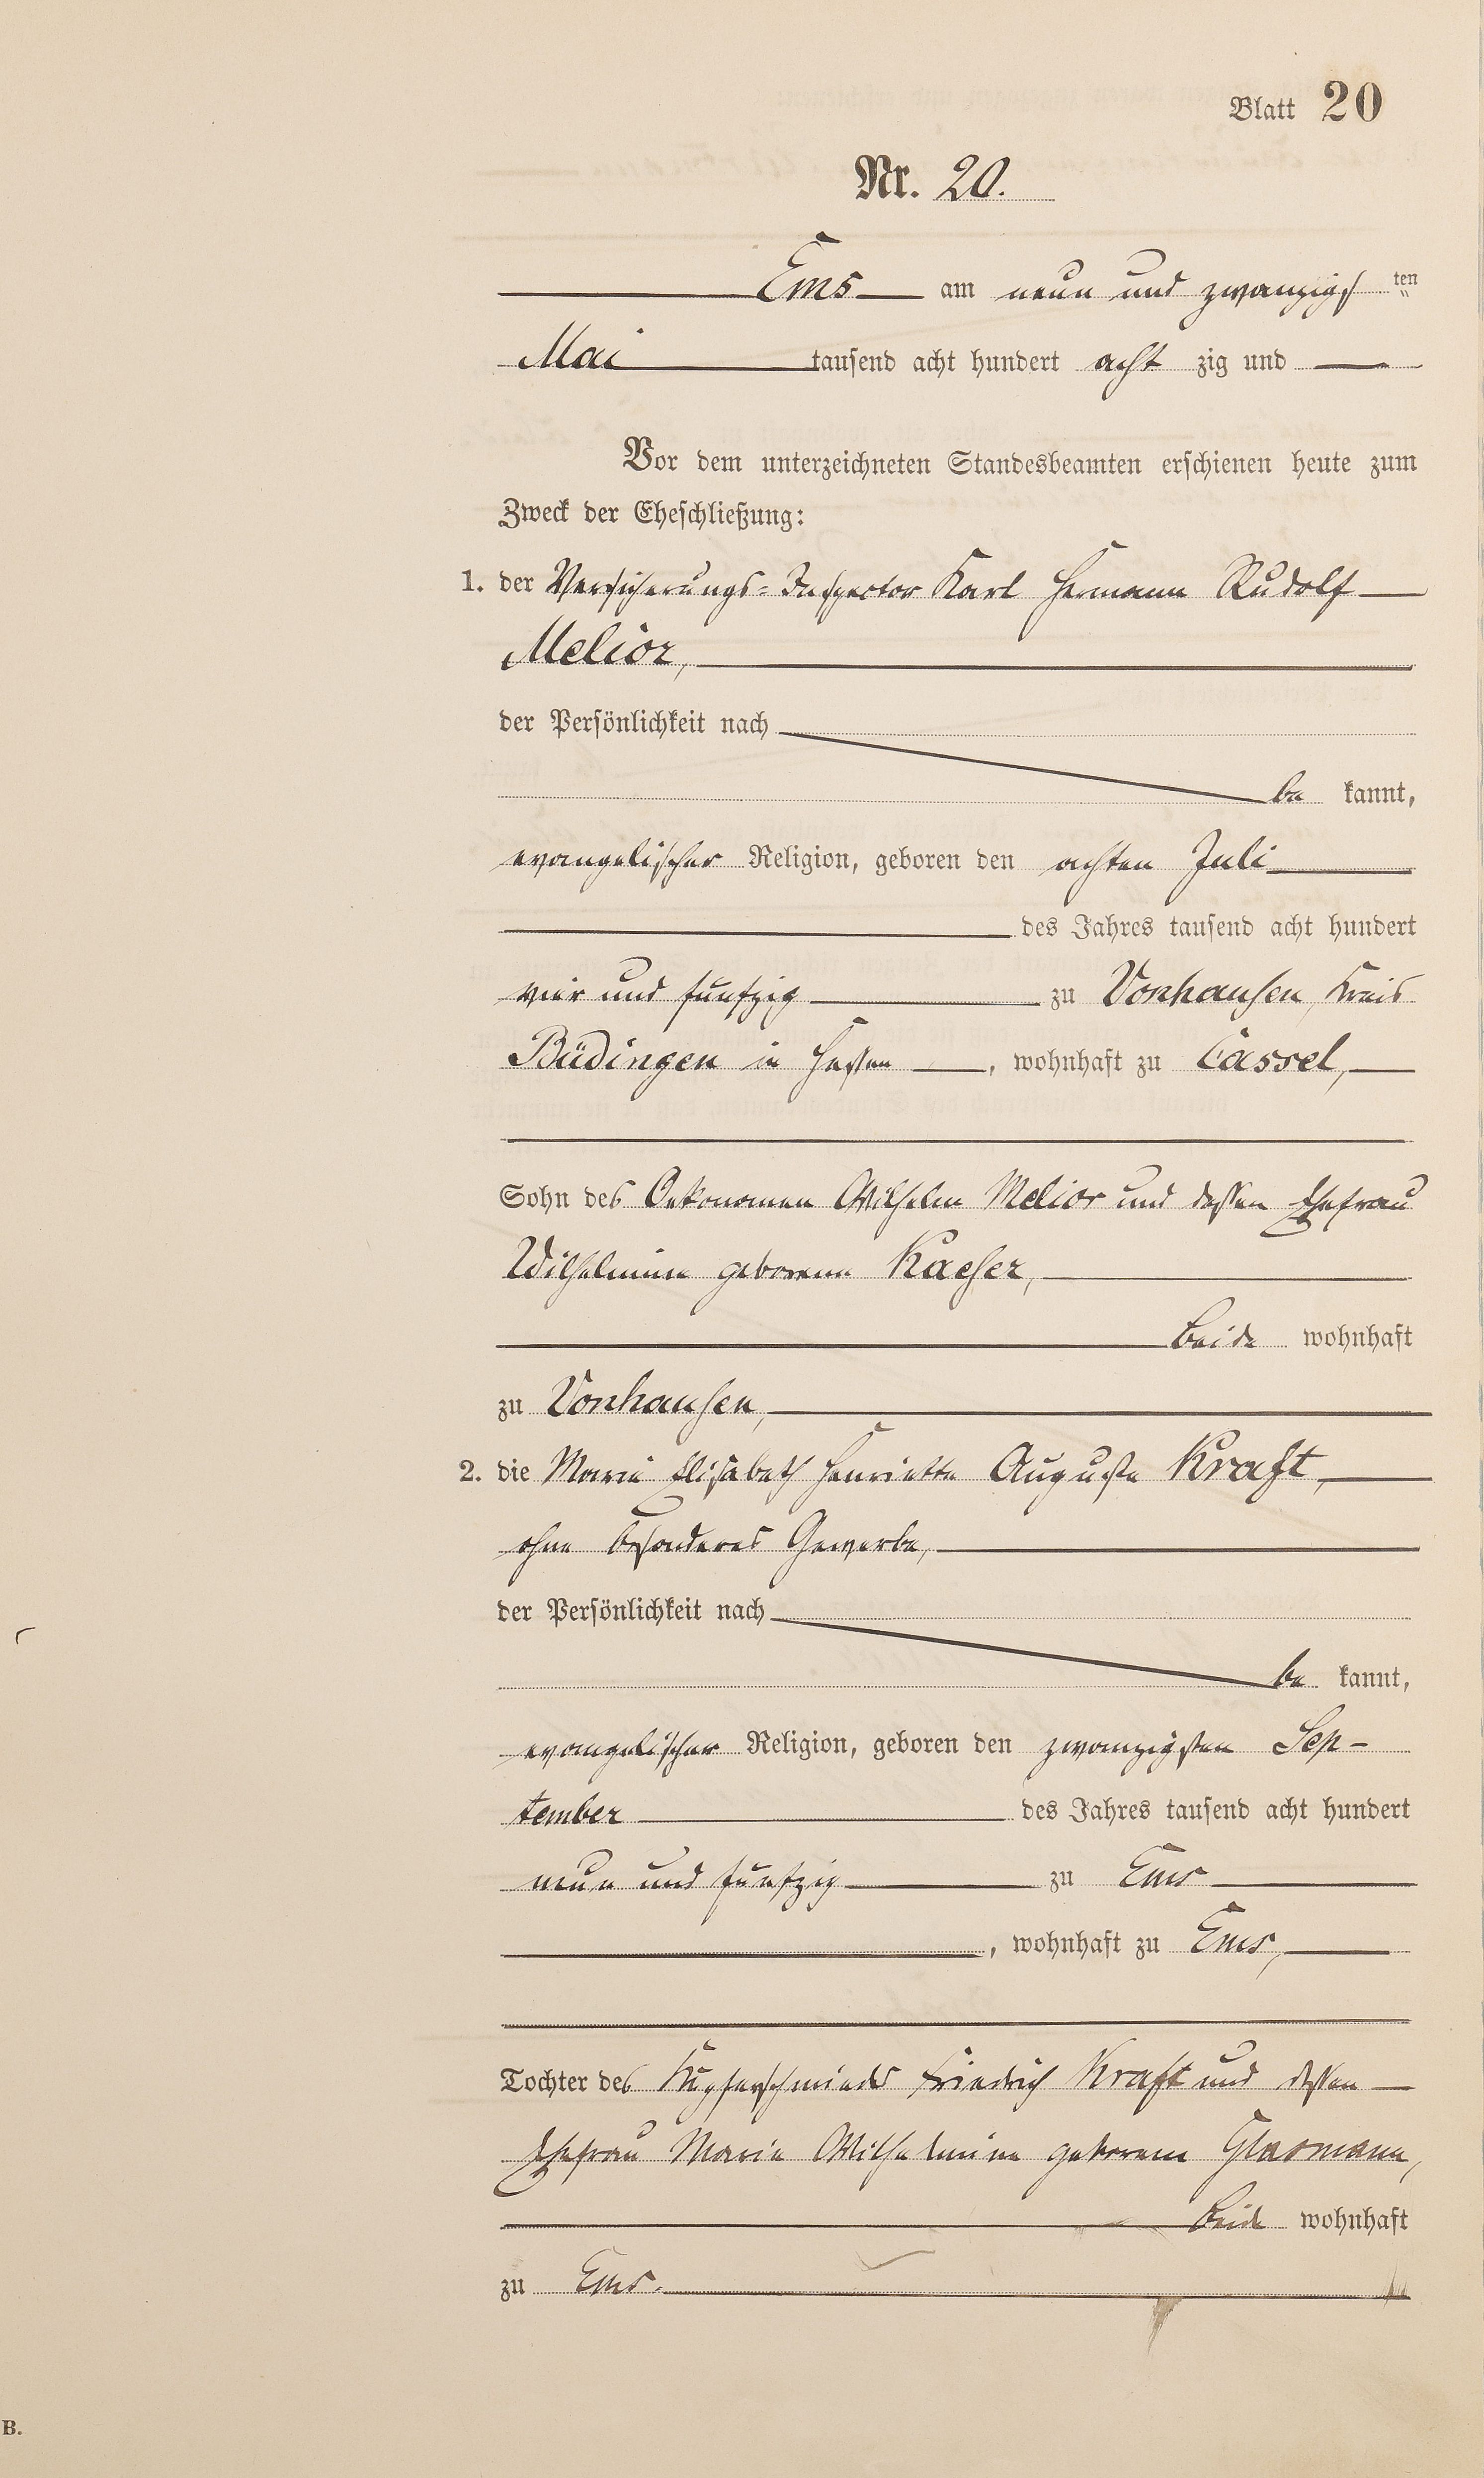 Blatt 20
Nr. 20.
Ems am neun und zwanzigsten
Mai tausend acht hundert acht zig und
Vor dem unterzeichneten Standesbeamten erschienen heute zum
Zweck der Eheschließung:
1. der Versicherungs-Inspector Karl Hermann Rudolf
Melior,
der Persönlichkeit nach
be kannt,
evangelischer Religion, geboren den achten Juli
des Jahres tausend acht hundert
vier und fünfzig zu Vonhausen, Kreis
Büdingen in Hessen, wohnhaft zu Cassel,
Sohn des Oekonomen Wilhelm Melior und dessen Ehefrau
Wilhelmine geborene Kaeser,
beide wohnhaft
zu Vonhausen,
2. die Marie Elisabeth Henriette Auguste Kraft,
ohne besonderes Gewerbe,
der Persönlichkeit nach
be kannt,
evangelischer Religion, geboren den zwanzigsten Sep-
tember des Jahres tausend acht hundert
neun und fünfzig zu Ems
, wohnhaft zu Ems,
Tochter des Kupferschmieds Friedrich Kraft und dessen
Ehefrau Marie Wilhelmine geborene Glasmann,
beide wohnhaft
zu Ems.
B.